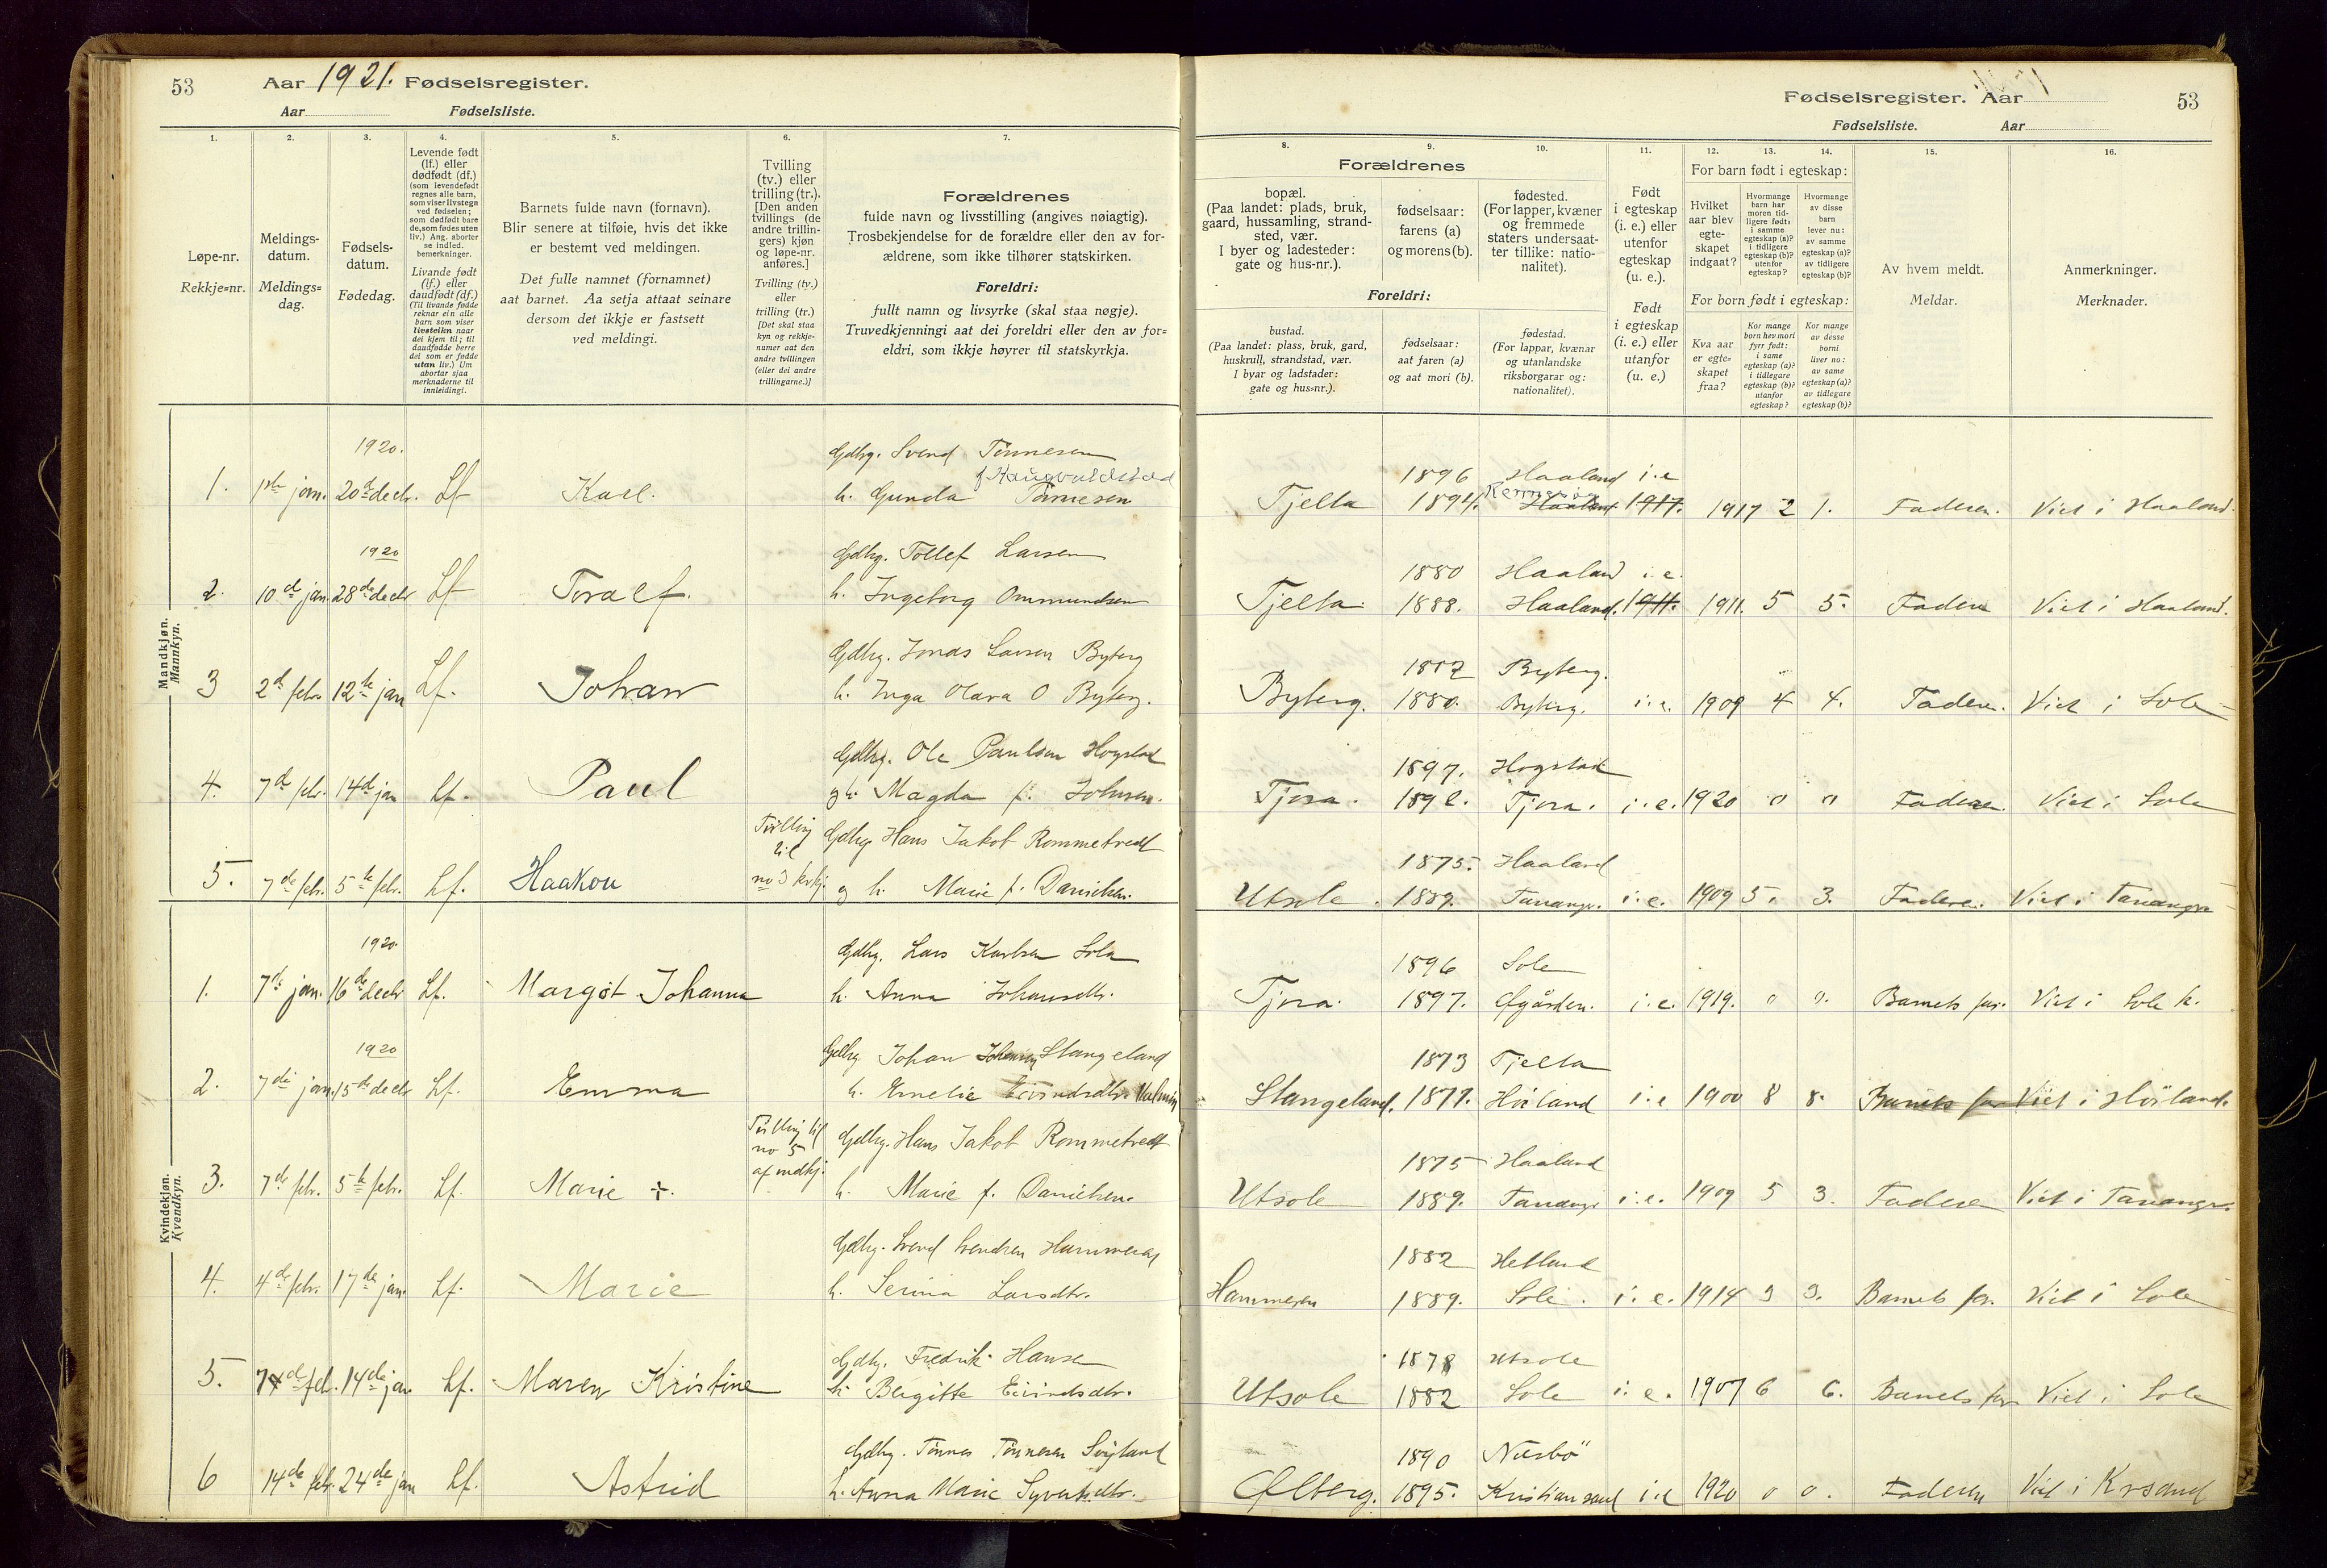 53 Aar 1921. Fødselsregister.
Aar Fødselsliste.
1. 2. 3. 4. 5. 6. 7.
Løpe-nr.
Rekkje=nr.
Meldings-
datum.
Meldings=
dag.
Fødsels-
datum.
Fødedag.
Levende født
(lf.) eller
dødfødt (df.)
(som levendefødt
regnes alle barn,
som viser livstegn
ved fødselen;
som dødfødt bare
de, som fødes uten
liv.) Ang. aborter
se indled.
bemerkninger.
Livande født
(lf.) eller
daudfødt (df.)
(Til livande fødde
reknar ein alle
born som viser
livsteikn naar
dei kjem til; til
daudfødde berre
dei som er fødde
utan liv.) Um
abortar sjaa
merknaderne til
innleidingi.
Barnets fulde navn (fornavn).
Blir senere at tilføie, hvis det ikke
er bestemt ved meldingen.
Det fulle namnet (fornamnet)
aat barnet. Aa setja attaat seinare
dersom det ikkje er fastsett
ved meldingi.
Tvilling
(tv.) eller
trilling (tr.).
[Den anden
tvillings (de
andre trillin-
gers) kjøn
og løpe-nr.
anføres.]
Tvilling (tv.)
eller
trilling (tr.)
[Det skal staa
kyn og rekkje-
numer aat den
andre tvillingen
(eller dei andre
trillingarne.)]
Forældrenes
fulde navn og livsstilling (angives nøiagtig).
Trosbekjendelse for de forældre eller den av for-
ældrene, som ikke tilhører statskirken.
Foreldri:
fullt namn og livsyrke (skal staa nøgje).
Truvedkjenningi aat dei foreldri eller den av for=
eldri, som ikkje høyrer til statskyrkja.
Mandkjøn.
Mannkyn.
1920. Gdbg. Svend Tønnesen
f. Haugvaldstad
1. 1ste jan. 20de decb. Lf Karl. h. Gunda Tønnesen
1920 Gdbg. Tollef Larsen
2. 10de jan. 28de decbr Lf Toralf. h. Ingeborg Ommundsen
Gdbg. Jonas Larsen Byberg
3 2de febr. 12te jan Lf. Johan h. Inga Olava O Byberg.
Gdbg. Ole Paulsen Hogstad
4. 7de febr. 14de jan Lf. Paul og h. Magda f. Johnsen.
Tvilling
til
no 3 kvkj. Gdbg Hans Jakob Rommetvedt
5. 7de febr. 5te febr. Lf. Haakon og h. Marie f. Danielsen.
Kvindekjøn.
Kvendkyn.
1920. Gdbg. Lars Karlsen Sola
1. 7de jan. 16de decbr Lf. Margot Johanna h. Anna Johansdtr.
1920 Gdbg Johan Johnsen Stangeland
2. 7de jan. 15de decbr Lf. Emma h. Emelie Eivindsdtr.
Tvilling til
no 5
af mdkj. Gdbg. Hans Jakob Rommetvedt
3. 7de febr. 5te febr. Lf. Marie +. h. Marie f. Danielsen.
Gdbg. Svend Svendsen Hammeren
4. 4de febr. 17de jan. Lf. Marie h. Serina Larsdtr.
Gdbg. Fredrik Hansen
5. 7de feb. 14de jan Lf. Maren Kristine h. Bergitte Eivindsdtr.
Gdbg. Tønnes Tønnesen
6 14de febr. 24de jan Lf. Astrid h. Anna Marie Syvertsdtr.
Fødselsregister. Aar 53
Fødselsliste. Aar
8. 9. 10. 11. 12. 13. 14. 15. 16.
Forældrenes
bopæl.
(Paa landet: plads, bruk,
gaard, hussamling, strand-
sted, vær.
I byer og ladesteder:
gate og hus-nr.).
fødselsaar:
farens (a)
og morens (b).
fødested.
(For lapper, kvæner
og fremmede
staters undersaat-
ter tillike: natio-
nalitet).
Foreldri:
bustad.
(Paa landet: plass, bruk, gard,
huskrull, strandstad, vær.
I byar og ladstader:
gate og hus=nr.).
fødselsaar:
aat faren (a)
og aat mori (b).
fødestad.
(For lappar, kvænar
og utanlandske
riksborgarar og:
nationalitet).
Født
i egteskap
(i. e.) eller
utenfor
egteskap
(u. e.).
Født
i egteskap
(i. e.) eller
utanfor
(u. e.)
For barn født i egteskap:
Hvilket
aar blev
egte-
skapet
indgaat?
Hvormange
barn har
moren tid-
ligere født:
i samme
egteskap (a)?
i tidligere
egteskap (b)?
utenfor
egteskap?
Hvormange
av disse
barn
lever nu:
av samme
egteskap (a)?
av tidligere
egteskap (b)?
For born født i egteskap:
Kva aar
er egte=
skapet
fraa?
Kor mange
born hev mori
fyrr født:
i same
egteskap (a)?
i tidlegare
egteskap (b)?
utanfor
egteskap?
Kor mange
av desse
borni
liver no:
av same
egteskap (a)?
av tidlegare
egteskap (b)?
Av hvem meldt.
Meldar.
Anmerkninger.
Merknader.
1896 Haaland i. e
Rennesø
Tjelta 1894. Haaland 1917. 1917 2 1. Faderen. Viet i Haaland.
1880 Haaland i. e.
Tjelta 1888. Haaland. 1911. 1911. 5 5. Faderen Viet i Haaland.
1882 Byberg.
Byberg. 1880. Byberg. i. e. 1909 4 4. Faderen. Viet i Sole
1897. Hogstad
Tjora. 1898. Tjora. i. e. 1920 0 0 Faderen. Viet i Sole
1875. Haaland
Utsole. 1889. Tananger. i. e. 1909 5. 3. Faderen. Viet i Tananger
1896 Sole
Tjora. 1897. Øgården. i. e. 1919. 0 0. Barnets far. Viet i Sole k.
1873 Tjelta
Stangeland. 1877. Höiland i. e 1900 8 8. Barnets far Viet i Höiland.
1875 Haaland
Utsole 1889. Tananger i. e. 1909 5 3. Faderen Viet i Tananger.
1882 Helland
Hammeren 1889. Sole. i. e. 1914 3 3. Barnets far. Viet i Sole
1878 Utsole
Utsole 1882 Sole i. e. 1907 6 6. Barnets far Viet i Sole
1890 Næsbö
Ølberg. 1895. Kristiansand i. e 1920 0 0. Faderen Viet i Krsand